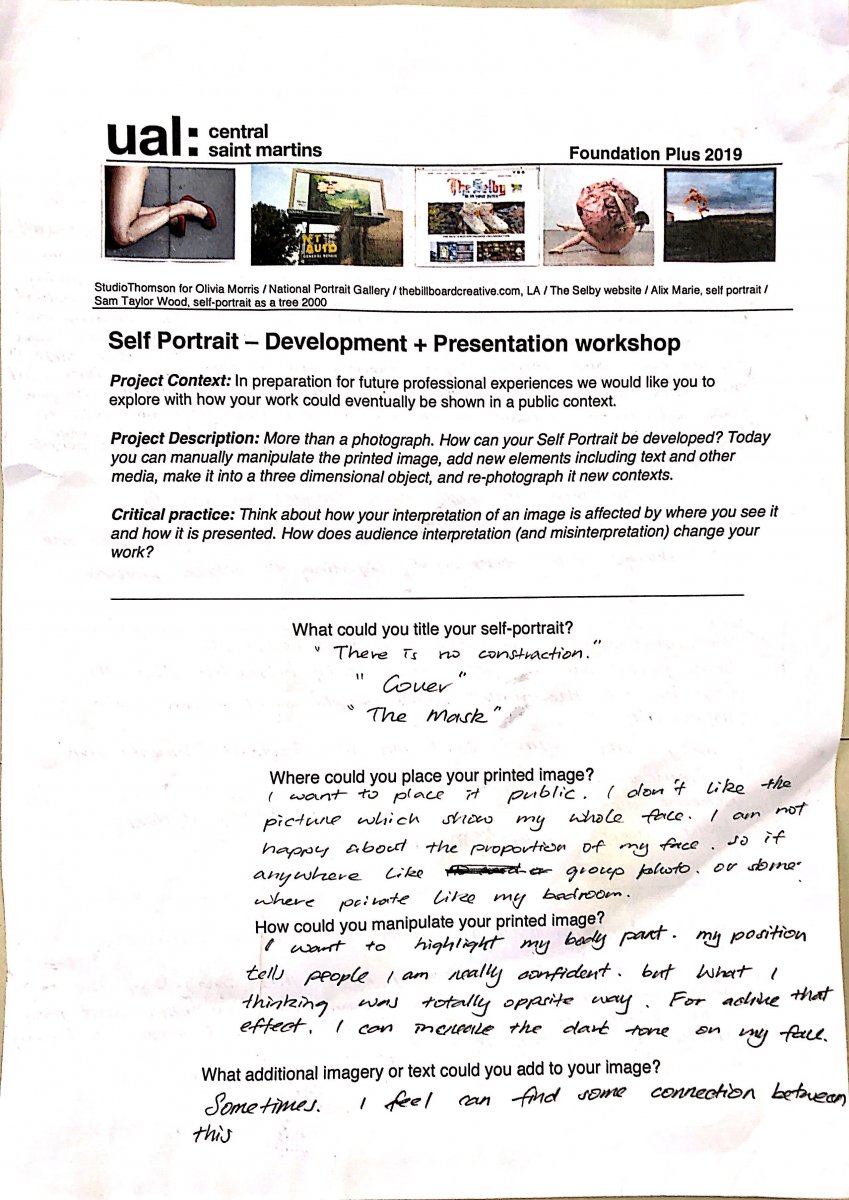 ual: central
saint martins
Foundation Plus 2019
The Selby
AUTO
StudioThomson for Olivia Morris / National Portrait Gallery / thebillboardcreative.com, LA / The Selby website / Alix Marie, self portrait /
Sam Taylor Wood, self-portrait as a tree 2000
Self Portrait – Development + Presentation workshop
Project Context: In preparation for future professional experiences we would like you to
explore with how your work could eventually be shown in a public context.
Project Description: More than a photograph. How can your Self Portrait be developed? Today
you can manually manipulate the printed image, add new elements including text and other
media, make it into a three dimensional object, and re-photograph it new contexts.
Critical practice: Think about how your interpretation of an image is affected by where you see it
and how it is presented. How does audience interpretation (and misinterpretation) change your
work?
What could you title your self-portrait?
"There is no constraction."
"Cover"
"The Mask"
Where could you place your printed image?
I want to place it public. I don't like the
picture which show my whole face. I am not
happy about the proportion of my face. so if
anywhere like group photo. or some
where private like my bedroom.
How could you manipulate your printed image?
I want to highlight my body part. my position
tells people I am really confident. but what I
thinking was totally opposite way. For achive that
effect. I can increase the dark tone on my face.
What additional imagery or text could you add to your image?
Sometimes. I feel can find some connection between
this